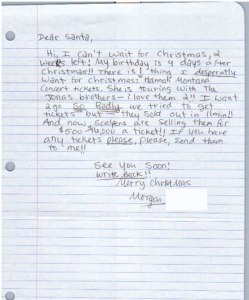 Dear Santa,
Hi, I can't wait for Christmas, 2
weeks left! My birthday is 4 days after
Christmas!! There is 1 thing I desperatly
want for Christmas: Hannah Montana
concert tickets. She is touring with The
Jonas brothers - i love them 2!! I want
2 go So Badly. we tried to get
tickets but - They Sold out in 1min!!
And now, scalpers are selling Them for
$500-$4,000 a ticket!! If you have
any tickets please, please, send them
to me!!
See You Soon!
write Back!!
Merry Christmas
Morgan